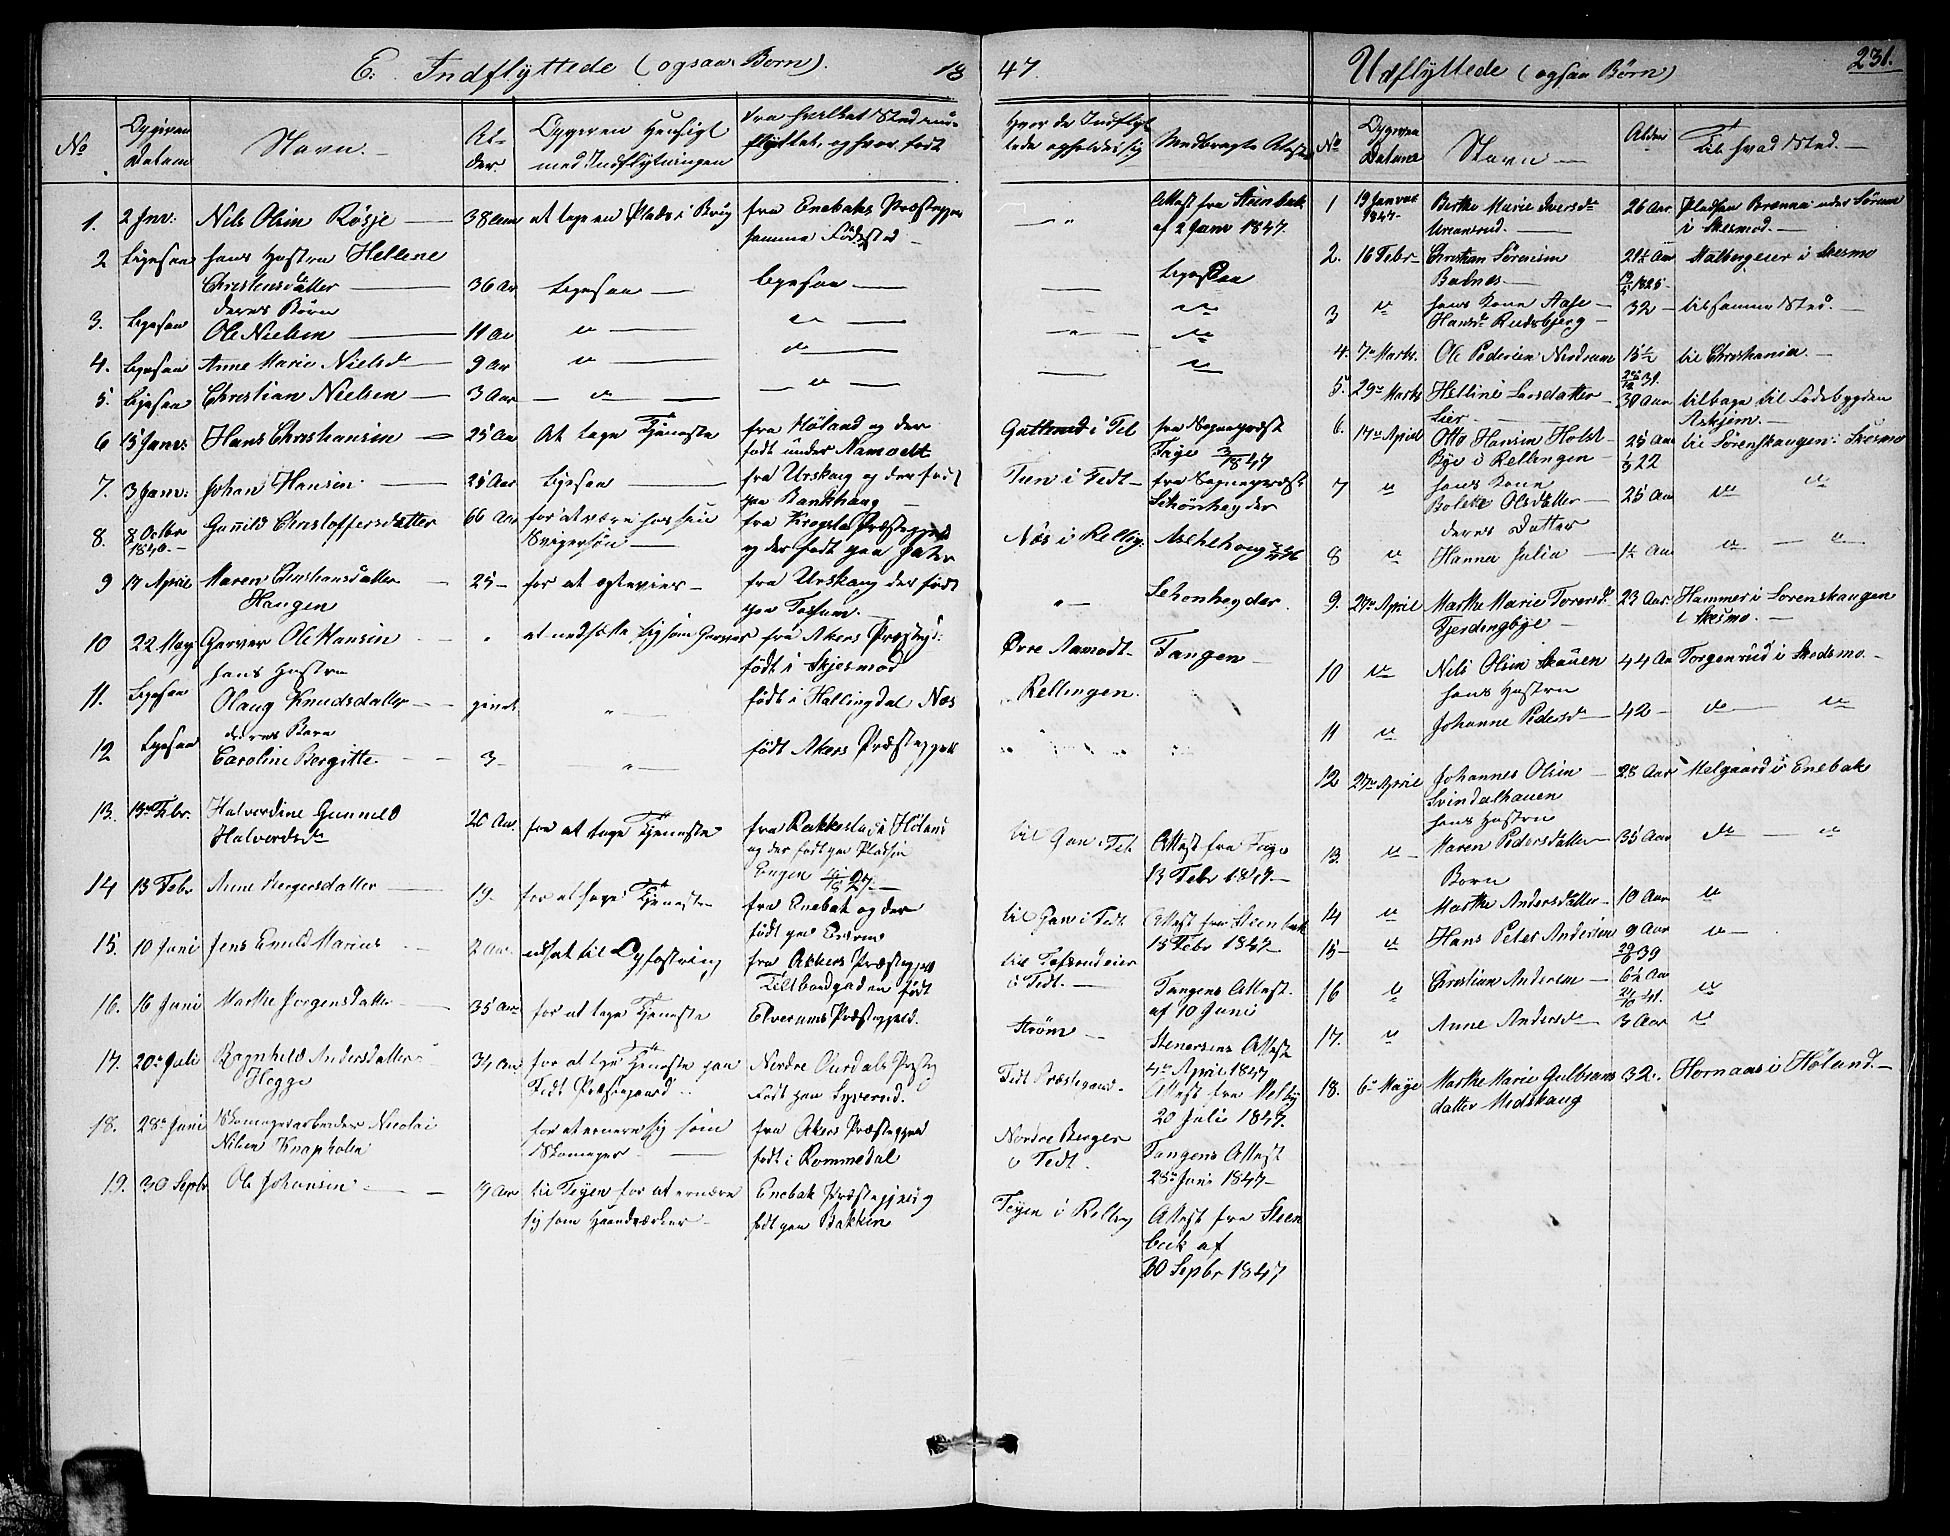 E. Indflyttede (ogsaa Børn). 1847. Udflyttede (ogsaa Børn) 231.
No
Opgiven Datum
Navn.
Alder.
Opgiven Hensigt med Indflytningen
Fra hvilket Sted udflyttet, og hvor født
Hvor de Indflyttede opholde sig
Medbragte Attest
No
Opgiven Datum
Navn
Alder
Til hvad Sted.
1. 2 Jnr: Nils Olsen Røsje 38 Aar at tage en Plads i Brug fra Enebaks Præstegjæ samme Fødested Attest fra Steenbuk af 2 Janv 1847
2 Ligesaa hans Hustru Hellene Christensdatter 36 Ar Ligesaa Ligesaa Ligesaa
deres Børn
3. Ligesaa Ole Nielsen 11 Ar
4. Ligesaa Anne Marie Nielsd 9 Ar
5. Ligesaa Christian Nielsen 3 Aar
6 15 Janv: Hans Christiansen 25 Aar At tage Tjeneste fra Høland og der født under Namodt i Fet fra Sogneprest Fage 3/1 1847
7. 3 Janv: Johan Hansen 25 Aar Ligesaa fra Urskoug og der født paa Bankhaug i Fedt fra Sogneprest Schönheyder
8. 8 Octbr 1846 Gunild Christoffersdatter 66 Aar for at være hos sin Svigersøn fra Krogstad Præstegjeld og der født paa Næs i Relling.
9 17 April Maren Christiansdatter Haugen 25 for at fra Urskoug der født paa Schönheyder.
10 22 May Garver Ole Hansen at nedsætte sig som Garver fra Akers Præstegj: født i Skjesmod Øvre Aamodt. Tangen
hans Hustru
11. Ligesaa Olaug Knudsdatter født i Hallingdal Næs Rellingen.
deres Barn
12 Ligesaa Caroline Bergitte 3 født Akers Præstegjeld
13. 13de Febr. Halverdine Gunnild Halversdr 20 Aar. for at tage Tjeneste fra Rakkestad i Høland og der født paa Pladsen Engen til Gan i Fet Attest fra Fage 13 Febr 1847
14 13 Febr Anne Jørgersdatter 19. for at tage Tjeneste fra Enebak og der født paa til Gan i Fedt Attest fra Steenbuk 13 Febr 1847
15. 10 Juni Jens Emild Marius 2 Aar. udsat til Opfostring fra Akkers Præstegjeld født til i Fedt. Tangens Attest af 10 Juni
16. 16 Juni Marthe Jørgensdatter 35 Aar for at tage Tjeneste Elverums Præstegjeld. Strøm Stenersens Attest 4de April 1847
17. 20de Juli Ragnhild Andersdatter Hegge 34 Aar for at tage Tjeneste paa Fedt Præstegaard Nordre Ourdals Præsteg Født paa Fedt Præstegaard. Attest fra 20 Juli 1847
18. 28de Juni Skomagerarbeider Nicolai Nilsen Knapholen for at ernære sig som Skomager fra Akers Præstegjeld født i Rommedal Nordre Berger i Fedt. Tangens Attest 28de Juni 1847
19. 30 Sepbr Ole Johansen Aar til Teyen for at ernære sig som Haandværker Enebak Præstegjeld født paa Bakken Teyen i Relling Attest fra Steenbuk af 30 Sepbr 1847
1 19 Januar 1847 Berthe Marie Iversdr 26 Aar. Pladsen Brænna under Sørum i Skesmod.
2. 16 Febr Christian Sørensen Balnes 21½ Aar i Skesmo
3 hans Kone Aase Hansdr Rudsbjerg 32 til samme Sted.
4. 7de Marts. Ole Pedersen Nordrum 15½ til Christiania.
5. 29de Marts Helline Larsdatter Lier 30 Aar tilbage til Fødebygden Askjem.
6. 17de April Otto Hansen Holst Bye i Rellingen 25 Aar til Lørenskaugen i Skesmo
7 hans Kone Bolette Olsdatter 25 Aar
deres Datter
8 Hanna Julia 1½ Aar
9. 27de April Marthe Marie Torersd. Fjerdingbye 23 Aar. Hammer i Lørenskaugen i Skesmo.
10 Nils Olsen Skouen 44 Aar Torgenrud i Skedsmo.
hans Hustru
11 Johanne Pedersdr 42
12 27de April Johannes Olsen Svindalhauen 28 Aar Melgaard i Enebak
hans Hustru
13. Maren Pedersdatter 35 Aar
Børn
14 Marthe Andersdatter 10 Aar
15 Hans Peter Andersen 9 Aar
16 Christian Andersen 6½ Aar
17. Anne Andersdr 3 Aar
18. 6te Maye Marthe Marie Gulbransdatter Medskaug 32. Hornaas i Høland.